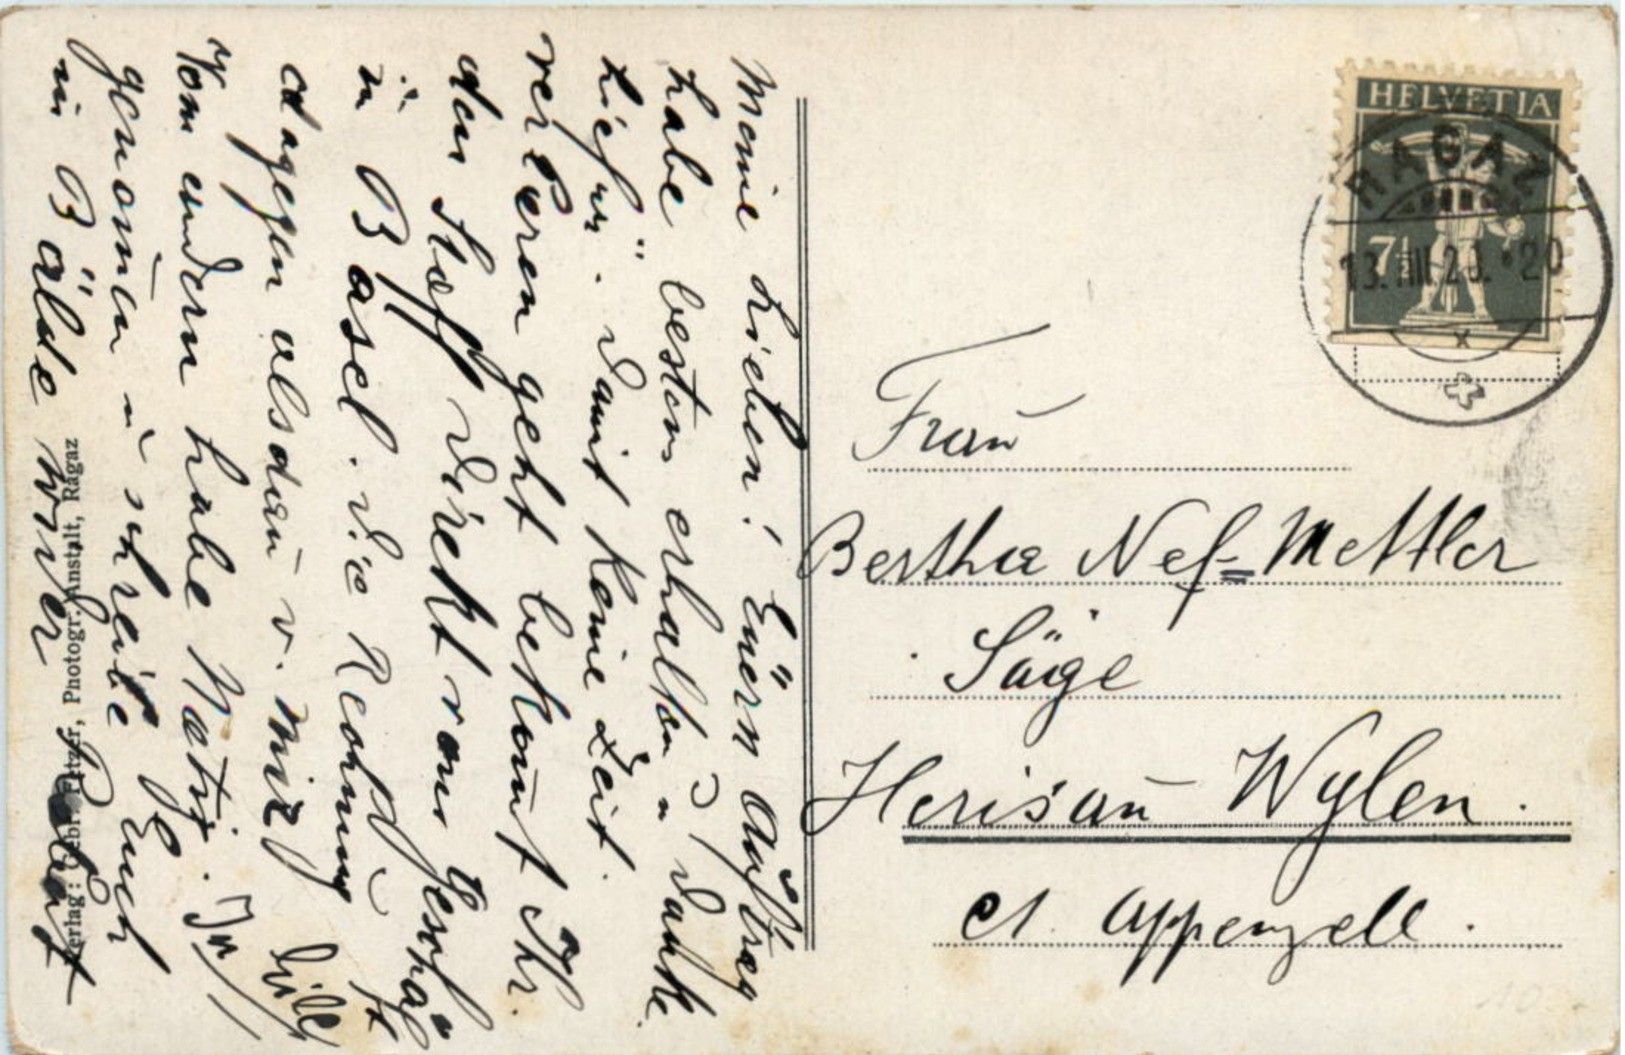 Meine Lieben! Euern Auftrag
habe bestens erhalten u danke
hiefür. Damit keine Zeit
verloren geht bekomt Ihr
den Stoff direkt vom Geschäft
in Basel. Die Rechnung
dagegen alsdan v. mir
Vom andern habe Notiz.
genomen u schreibe Euch
in Bälde wieder
Verlag: Gebr. Fetzer, Photogr. Anstalt, Ragaz
HELVETIA
7½
RAGAZ
Frau
Bertha Nef=Mettler
Säge
Herisau Wylen.
Ct. Appenzell.